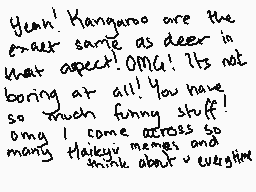 Yeah! Kangaroo are the
exact same as deer in
that aspect! OMG! Its not
boring at all! You have
so much funny stuff!
omg I come across so
many Haikyu memes and
think about u everytime